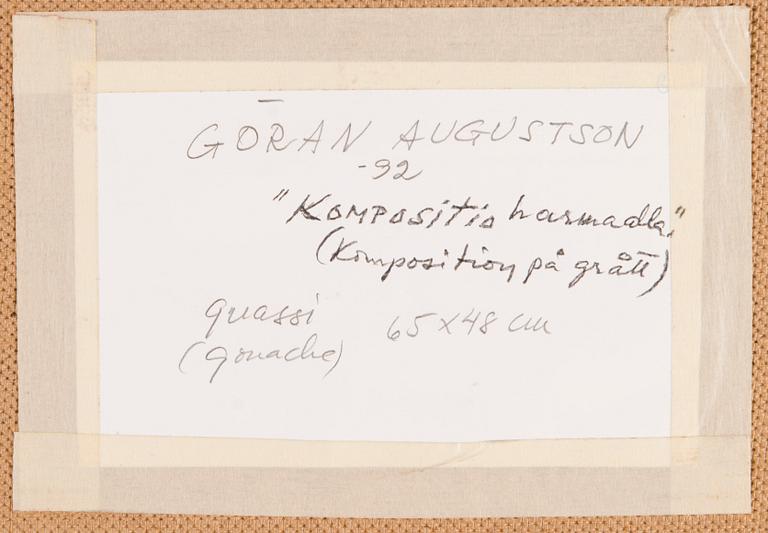 GÖRAN AUGUSTSON
-92
"KOMPOSITIO harmaalla"
(Komposition på grått)
guassi
(gouache) 65x48 cm